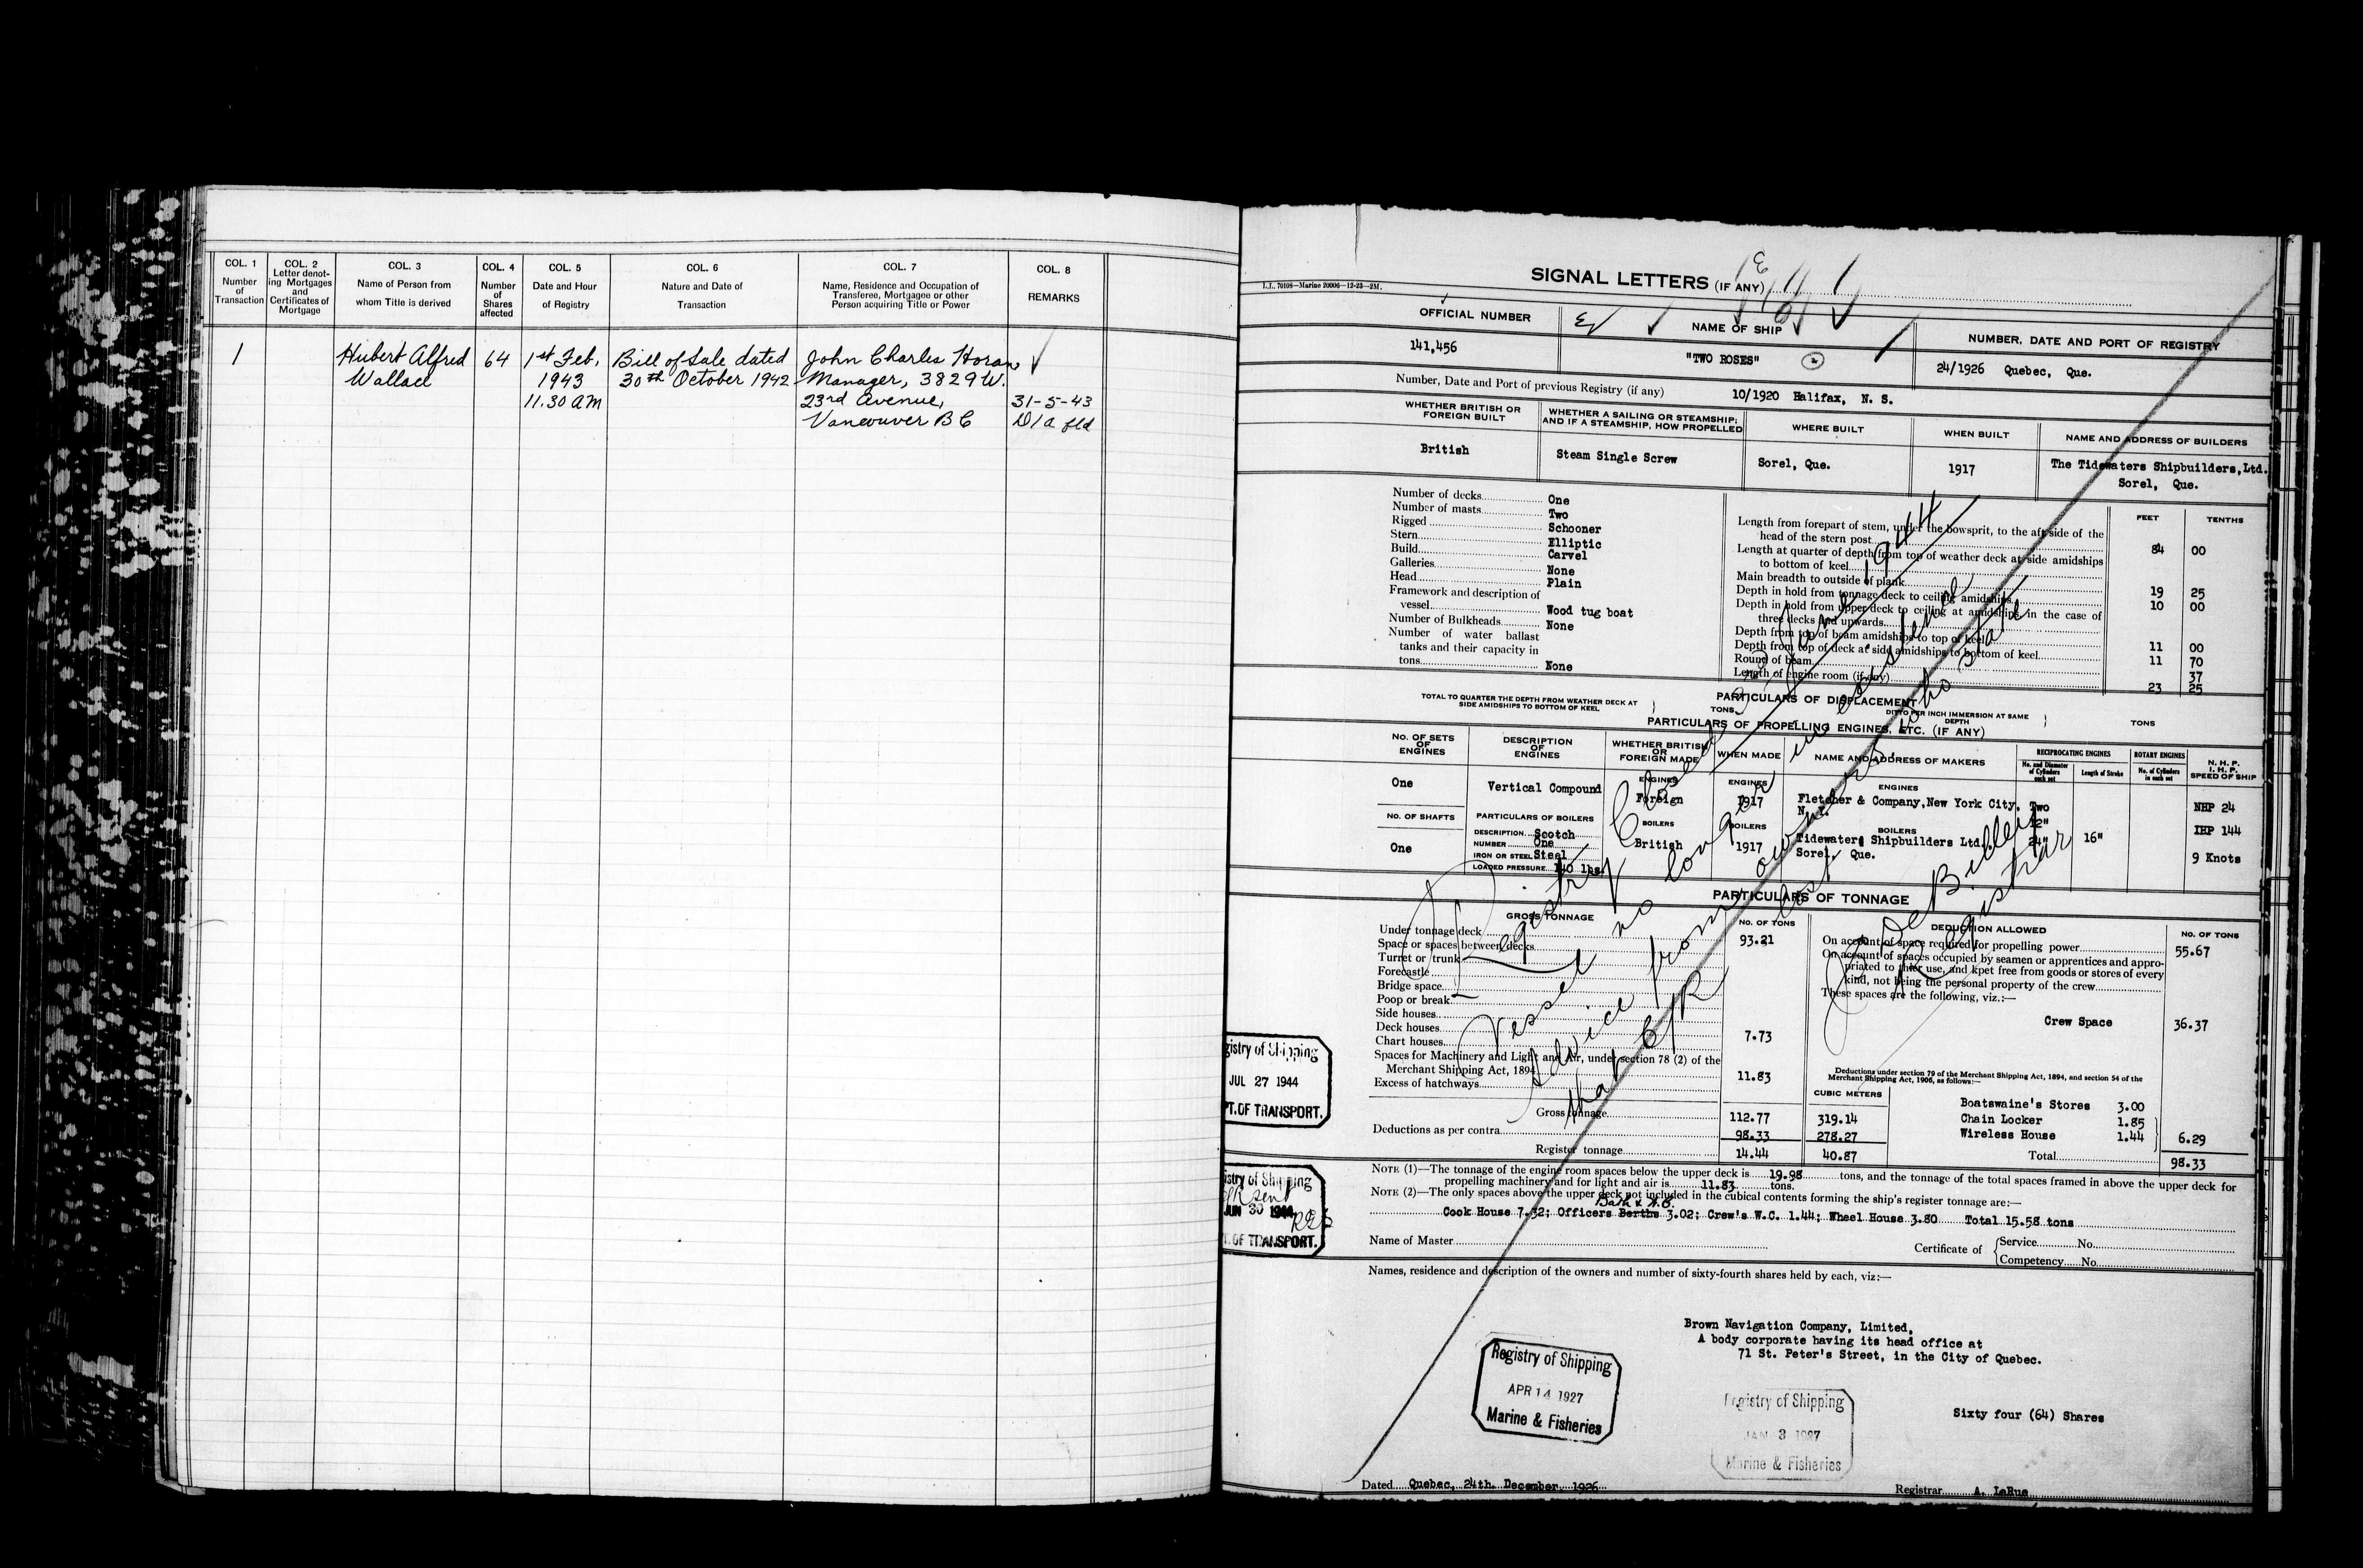 COL. 1
Number
of
Transaction
COL. 2
Letter denot-
ing Mortgages
and
Certificates of
Mortgage
COL. 3
Name of Person from
whom Title is derived
COL. 4
Number
of
Shares
affected
COL. 5
Date and Hour
of Registry
COL. 6
Nature and Date of
Transaction
COL. 7
Name, Residence and Occupation of
Transferee, Mortgagee or other
Person acquiring Title or Power
COL. 8
REMARKS
1
Hubert Alfred
Wallace
64
1st Feb.
1943
11.30 AM
Bill of Sale dated
30th October 1942
John Charles Horan
Manager, 3829 W.
23rd Avenue,
Vancouver B C
31-5-43
D/a fld
SIGNAL LETTERS (IF ANY)
I.I. 70108—Marine 20006—12-23—2M.
OFFICIAL NUMBER
141,456
NAME OF SHIP
"TWO ROSES"
NUMBER, DATE AND PORT OF REGISTRY
24/1926 Quebec, Que.
Number, Date and Port of previous Registry (if any) 10/1920 Halifax, N. S.
WHETHER BRITISH OR
FOREIGN BUILT
British
WHETHER A SAILING OR STEAMSHIP;
AND IF A STEAMSHIP, HOW PROPELLED
Steam Single Screw
WHERE BUILT
Sorel, Que.
WHEN BUILT
1917
NAME AND ADDRESS OF BUILDERS
The Tidewaters Shipbuilders,Ltd.
Sorel, Que.
Number of decks One
Number of masts Two
Rigged Schooner
Stern Elliptic
Build Carvel
Galleries None
Head Plain
Framework and description of
vessel Wood tug boat
Number of Bulkheads None
Number of water ballast
tanks and their capacity in
tons None
FEET TENTHS
Length from forepart of stem, under the bowsprit, to the aft side of the
head of the stern post 84 00
Length at quarter of depth from top of weather deck at side amidships
to bottom of keel
Main breadth to outside of plank 19 25
Depth in hold from tonnage deck to ceiling amidships 10 00
Depth in hold from upper deck to ceiling at amidships, in the case of
three decks and upwards
Depth from top of beam amidships to top of keel 11 00
Depth from top of deck at side amidships to bottom of keel 11 70
Round of beam 37
Length of engine room (if any) 23 25
PARTICULARS OF DISPLACEMENT
TOTAL TO QUARTER THE DEPTH FROM WEATHER DECK AT
SIDE AMIDSHIPS TO BOTTOM OF KEEL
TONS
DITTO PER INCH IMMERSION AT SAME
DEPTH
TONS
PARTICULARS OF PROPELLING ENGINES, ETC. (IF ANY)
No. OF SETS
OF
ENGINES
One
DESCRIPTION
OF
ENGINES
Vertical Compound
WHETHER BRITISH
OR
FOREIGN MADE
ENGINES
Foreign
WHEN MADE
ENGINES
1917
NAME AND ADDRESS OF MAKERS
ENGINES
Fletcher & Company,New York City,
N.Y.
RECIPROCATING ENGINES
No. and Diameter
of Cylinders
each set
Length of Stroke
Two
12"
24"
16"
ROTARY ENGINES
No. of Cylinders
in each set
N. H. P.
I. H. P.
SPEED OF SHIP
NHP 24
IHP 144
9 Knots
No. OF SHAFTS
One
PARTICULARS OF BOILERS
DESCRIPTION Scotch
NUMBER One
IRON OR STEEL Steel
LOADED PRESSURE 140 lbs.
BOILERS
British
BOILERS
1917
BOILERS
Tidewaters Shipbuilders Ltd.,
Sorel, Que.
PARTICULARS OF TONNAGE
GROSS TONNAGE
No. OF TONS
Under tonnage deck 93.21
Space or spaces between decks
Turret or trunk
Forecastle
Bridge space
Poop or break
Side houses
Deck houses 7.73
Chart houses
Spaces for Machinery and Light and Air, under section 78 (2) of the
Merchant Shipping Act, 1894 11.83
Excess of hatchways
CUBIC METERS
Gross tonnage 112.77 319.14
Deductions as per contra 98.33 278.27
Register tonnage 14.44 40.87
DEDUCTION ALLOWED
No. OF TONS
On account of space required for propelling power 55.67
On account of spaces occupied by seamen or apprentices and appro-
priated to thier use, and kpet free from goods or stores of every
kind, not being the personal property of the crew
These spaces are the following, viz.:—
Crew Space 36.37
Deductions under section 79 of the Merchant Shipping Act, 1894, and section 54 of the
Merchant Shipping Act, 1906, as follows:—
Boatswaine's Stores 3.00
Chain Locker 1.85
Wireless House 1.44 6.29
Total 98.33
Registry Closed 3rd June 1944
Vessel no longer in existence
Advice from owners who state
that
lost
Registrar
NOTE (1)—The tonnage of the engine room spaces below the upper deck is 19.98 tons, and the tonnage of the total spaces framed in above the upper deck for
propelling machinery and for light and air is 11.83 tons.
NOTE (2)—The only spaces above the upper deck not included in the cubical contents forming the ship's register tonnage are:—
Bath &
Cook House 7.32; Officers Berths 3.02; Crew's W.C. 1.44; Wheel House 3.80 Total 15.58 tons
Name of Master
Certificate of
Service No.
Competency No.
Names, residence and description of the owners and number of sixty-fourth shares held by each, viz:—
Brown Navigation Company, Limited,
A body corporate having its head office at
71 St. Peter's Street, in the City of Quebec.
Sixty four (64) Shares
gistry of Shipping
JUL 27 1944
PT. OF TRANSPORT.
istry of Shipping
JUN 30 1944
T. OF TRANSPORT.
Registry of Shipping
APR 14 1927
Marine & Fisheries
Registry of Shipping
JAN 3 1927
Marine & Fisheries
Dated Quebec, 24th. December, 1926
Registrar A. LaRue